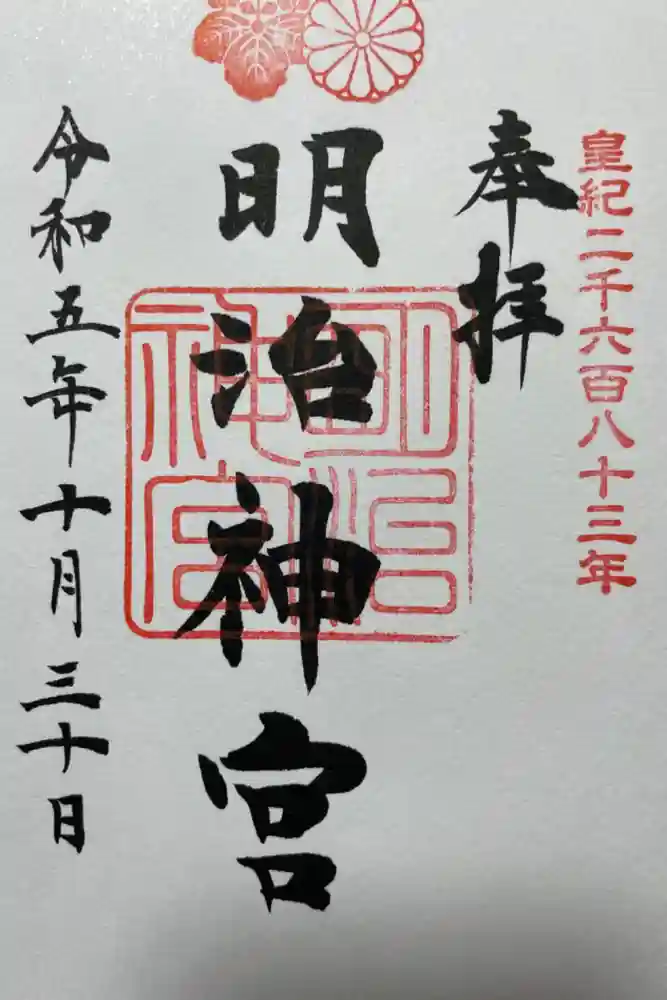 皇紀二千六百八十三年
奉拝
明治神宮
明治
神宮
令和五年十月三十日